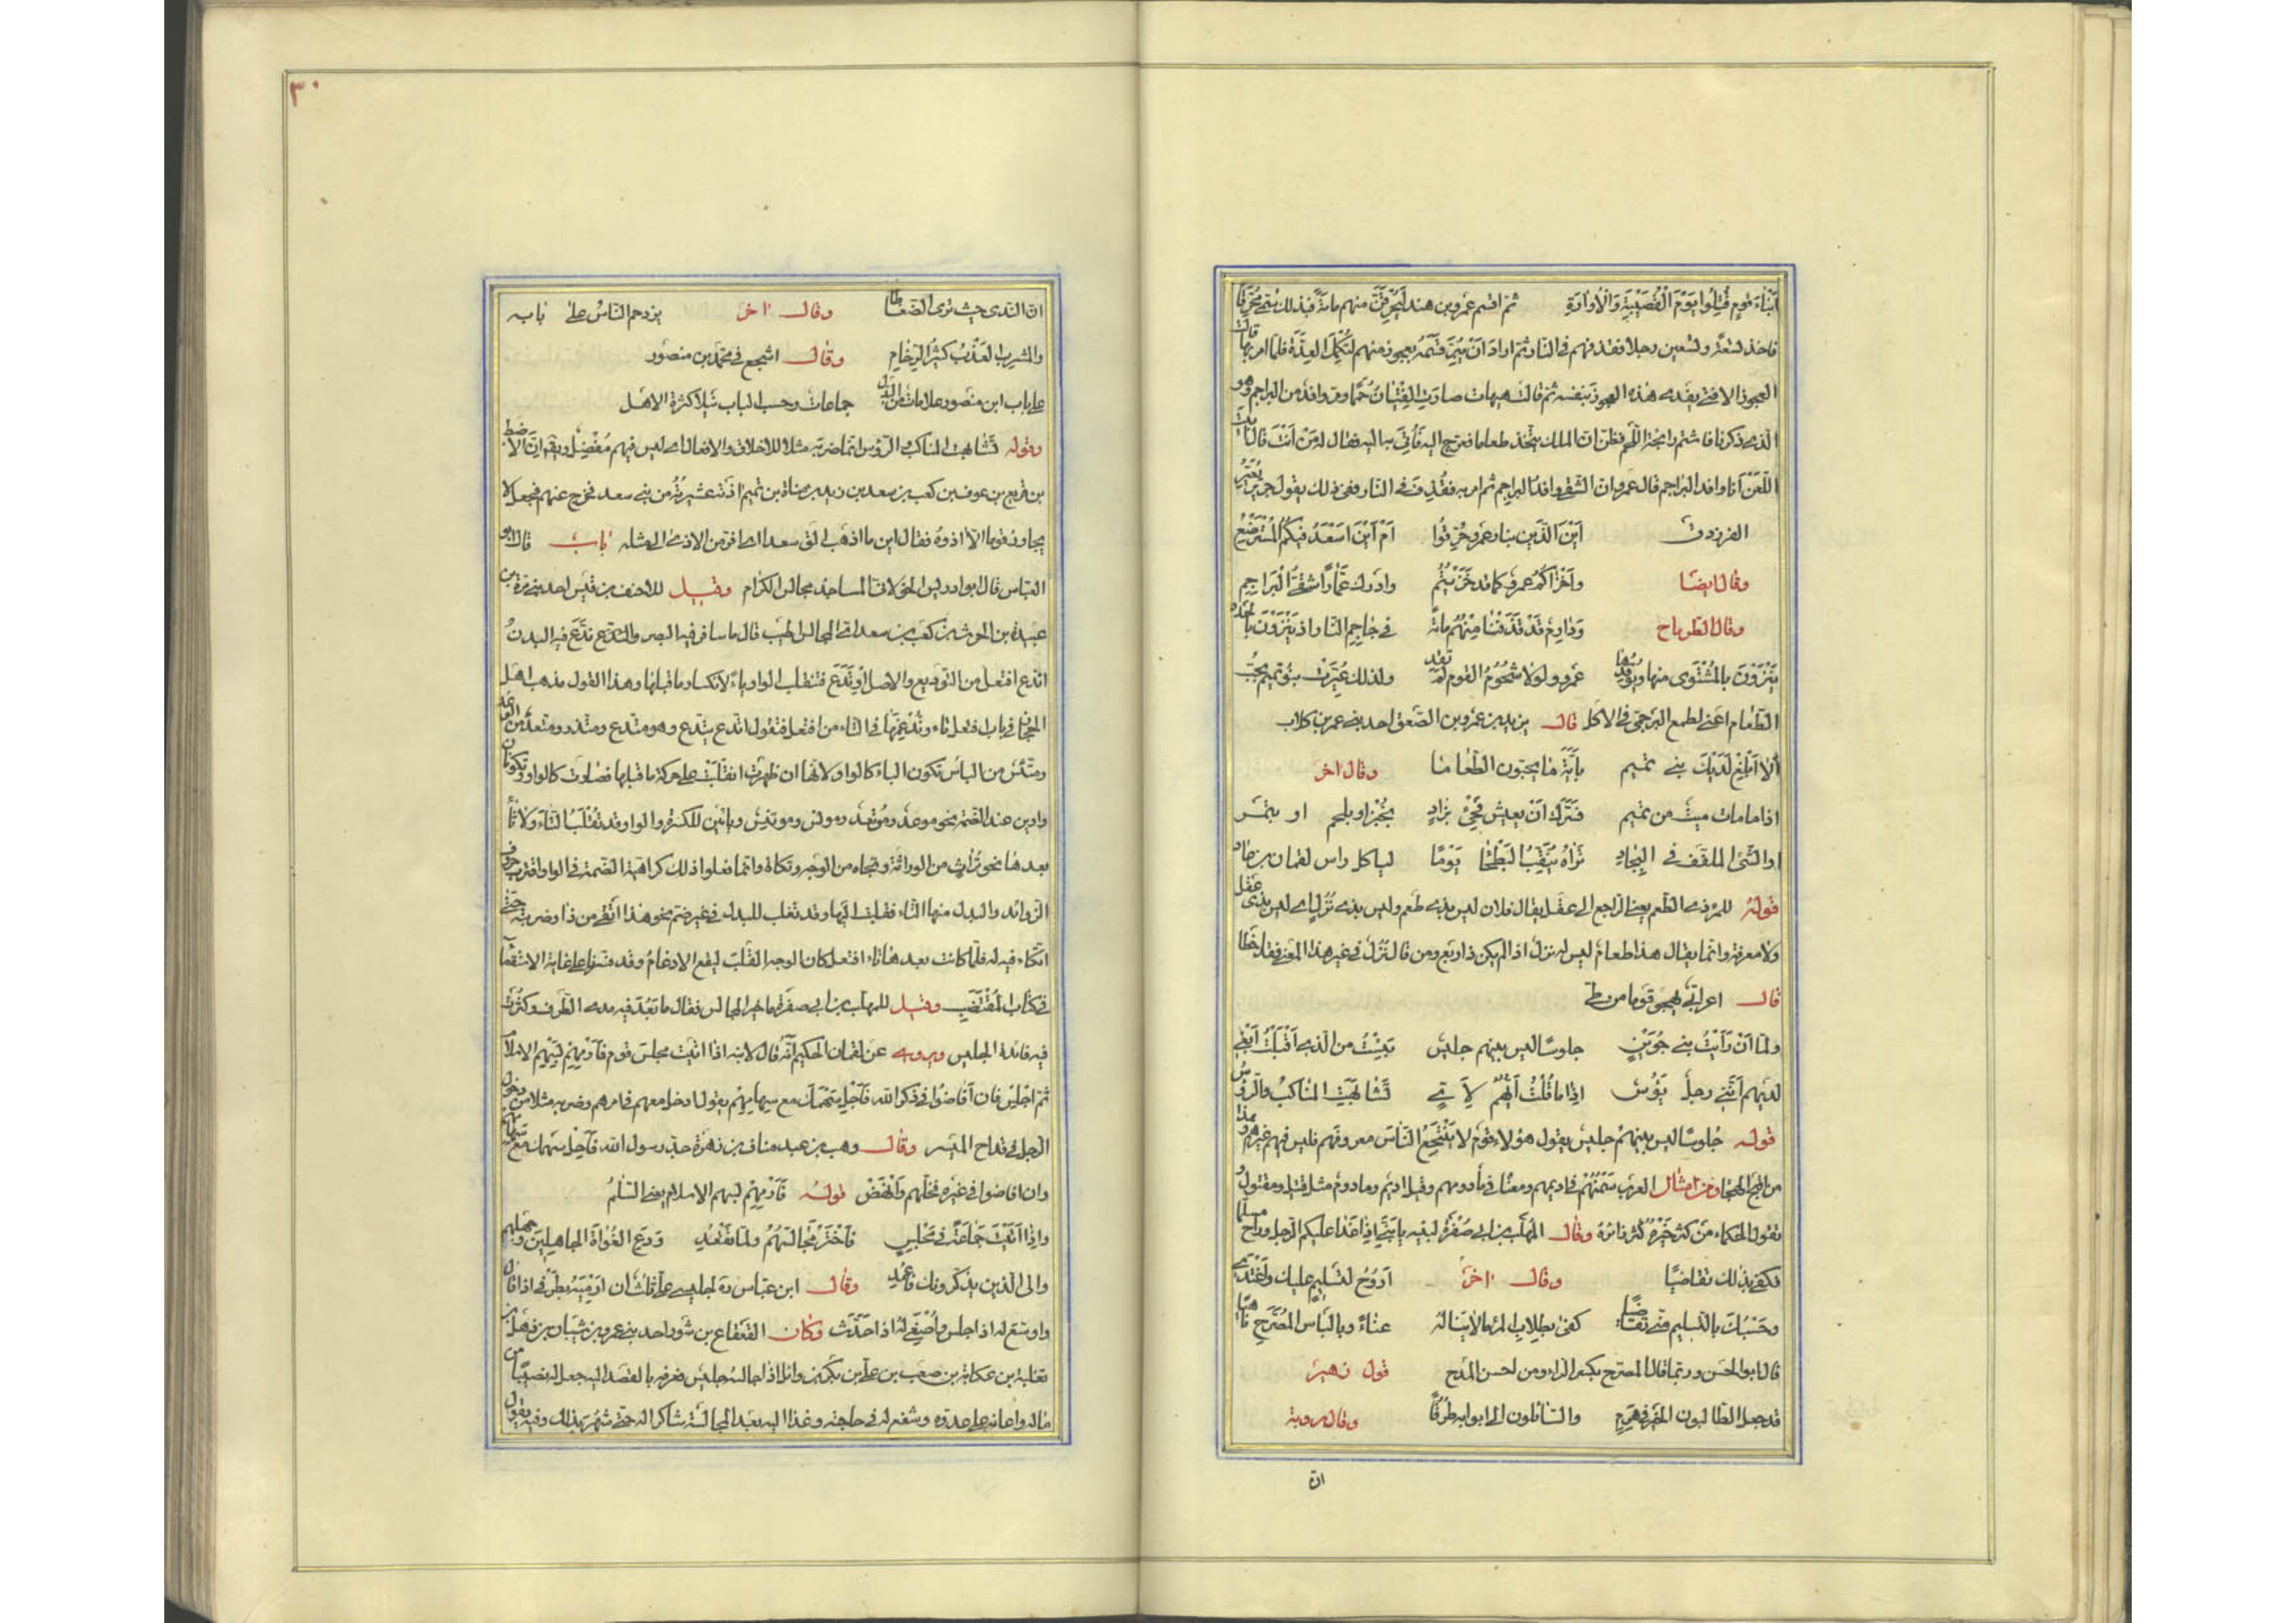 اَبْنَاءَ قومٍ قُتِلُوا يَوْمَ الْقُصَيْبَةِ وَالْاُوَارَةِ ثم اقسم عمرو بن هند لَيُحَرِّقَنَّ منهم مائةً فبذلك سُمِّيَ مُحَرِّقًا
فاخذ تسعةً وتسعين رجلا فقذفهم في النار ثم اراد اَنْ يُبِرَّ قَسَمَهُ بعجوز منهم لِتُكْمَلَ العِدَّةُ فلما امر بها قالت
العجوز الا فتى يفدى هذه العجوز بنفسه ثم قالت هيهات صارت الفِتْيَانُ حُمَمًا ومر وافد من البراجم وهو
الذى ذكرنا فاشتم رائحة اللحم فظن ان الملك يتخذ طعاما فعرج اليه فَاُتِيَ به اليه فقال له مَنْ اَنْتَ قال اَبَيْتَ
اللَّعْنَ اَنَا وافد البراجم قال عمرو ان الشقى وافد البراجم ثم امر به فقُذِفَ فى النار ففى ذلك يقول جرير يُعَيِّرُ
الفرزدق اَيْنَ الَّذين بنار عمرو حُرِّقُوا اَمْ اَيْنَ اَسْعَدُ فيكُمُ الْمُسْتَرْضَعُ
وقال ايضا وَاَخْزَاكُمُ عمرو كما قد خَزِيتُمُ وادرك عَمَّارًا شَقِىُّ الْبَرَاجِمِ
وقال الطرماح وَدَارِمٌ قَدْ قَذَفْنَا مِنْهُمُ مائَةً فى جَاحِمِ النار اذ يَنْزَوْنَ بالخُدَدِ
يَنْزَوْنَ بالمُشْتَوَى منها ويوقدها عَمْرو ولولا شُحُومُ القوم لَمْ تَقِدِ ولذلك عُيِّرَتْ بنو تميم بحُبّ
الطعام اعنى لطمع البرجمىّ فى الاكل قال يزيد بن عمرو بن الصَّعِق احد بنى عمرو بن كلاب
اَلا اَبْلِغْ لَدَيْكَ بنى تميم بآيَةِ مَا يحبّون الطَّعَامَا وقال اخر
اذا ما مات ميتٌ من تميم فَسَرَّكَ اَنْ يعيش فَجِئْ بِزَادِ بخُبْزٍ او بلحم او بتمر
او الشَّئ الملفّف فى البِجَادِ تَرَاهُ يُنَقِّبُ البَطْحَا يَوْمًا لياكل راس لقمان بن عاد
قوله للمرذى الطَّعْم يعنى الراجع الى عقل يقال فلان ليس بذى طَعْم وليس بذى نُزْلٍ اى ليس بذى عقل
ولا معرفة وانما يقال هذا طعام ليس له نزل اذا لم يكن ذا ريع ومن قال نُزُل فى غير هذا المعنى فقد اخطا
قال اعرابى يهجو قوما من طى
ولما اَنْ رَاَيْتُ بنى جُوَيْنٍ جلوسًا ليس بينهم جليسُ يئستُ من الذى اَقْبَلْتُ اَبْغِى
لديهم اِنَّنِى رجلٌ يَؤُسُ اذا ما قُلْتُ اَيُّهُمُ لِاَيٍّ تَشَابَهَتِ المناكبُ والرؤُسُ
قوله جُلُوسًا ليس بينهم جليس يقول هؤلاء قوم لا يَنْتَجِعُ الناسُ معروفهم فليس فيهم غيرهم وهذا
من اقبح الهجاء ومن امثال العرب سَمْنُهُمْ فى اديمهم ومعناه فى مأدومهم وقيل اديم ومادوم مثل قتيل ومقتول و
تقول الحكماء من كثر خَيْرُهُ كَثُرَ زائرُه وقال المهلب بن ابى صُفْرَةَ لبنيه يا بَنِىَّ اذا غَدَا عليكم الرجل وراح مسلّما
فكفى بذلك تقاضيًا وقال اخر اَرُوحُ لِتَسْلِيمٍ عليك واَغْتَدِى
وحَسْبُكَ بالتسليم منى تقاضيا كفى بطِلابِ المرء مالا يناله عناءً وبالياس المُصَرَّحِ ناهيا
قال ابو الحسن وربما قال المصرِّح بكسر الراء ومن احسن المدح قول زهير
قد جعل الطالبون الخَيْرَ فى هَرِمٍ والسائلون الى ابوابه طُرُقًا وقال رؤبة
ان
٣٠
ان الندى حيث ترى الضغاطا وقال اخر يزدحم الناسُ على بابه
والمشرب العَذْبُ كثيرُ الزِّحَامِ وقال اشجع فى محمّد بن منصور
على باب ابن منصور علامات من البذل جماعات وحسب الباب نُبلًا كثرة الاهل
وقوله تَشَابَهَتِ المناكب والرؤس انما ضربه مثلا للاخلاق والافعال اى ليس فيهم مُفْضِل ويقال ان الاضبط
بن قريع بن عوف بن كعب بن سعد بن زيد مناة بن تميم اذته عشيرتُهُ من بنى سعد فخرج عنهم فجعل لا
يجاور قوما الّا اذوه فقال اين ما اذهب الق سعدا اى افرّ من الاذى الى مثله باب قال ابو
العباس قال ابو ادريس الخولانى المساجد مجالس الكرام وقيل للاحنف بن قيس احد بنى مرة بن
عبيد بن الحرث بن كعب بن سعد اىّ المجالس اطيب قال ما سافر فيه البصر واتّدع فيه البدنُ
اتدع افتعل من التوديع والاصل اوتدع فتنقلب الواو ياءً لانكسار ما قبلها وهذا القول مذهب اهل
الحجاز فى باب افتعل ثاء وتُدْغِمُهَا فى التاء من افتعل فتقول اتدع يتدع وهو متدع ومتزر ومتعد من الوعد
ومتئس من الياس تكون الياء كالواو لانها ان ظهرت انقلبت على حركة ما قبلها فصارت كالواو وتكونان
واوين عند الضمة نحو موعد ومُوتَعِد وموئس وموتئس وياءين للكسرة والواو قد تُقْلَبُ التاءَ ولا تاء
بعدها نحو تُراث من الوراثة وتجاه من الوجه وتكاة وانما فعلوا ذلك كراهية الضمة فى الواو واقرب حروف
الزوائد والبدل منها التاء فقلبت اليها وقد تقلب للبدل فى غير ضم نحو هذا اتقى من ذا وضربته حتى
اتكاه فيه له فلما كانت بعدها تاء افتعل كان الوجه القلب ليقع الادغام وقد فسرنا هذا على غاية الاستقصاء
فى كتاب المُقْتَضَبِ وقيل للمهلب بن ابى صفرة ما خير المجالس فقال ما بَعُدَ فيه مدى الطرف وكثُرَتْ
فيه فائدة الجليس ويروى عن لقمان الحكيم انّه قال لابنه اذا اتيت مجلس قوم فَارْمِهِمْ بسَهْمِ الاسلام
ثم اجْلِسْ فان اَفَاضُوا فى ذكر الله فَاَجِلْ سَهْمَكَ مع سهامِهِمْ يقول ادخل معهم فى امرهم وضربه مثلا من دخول
الرجل فى قداح الميسر وقال وهب بن عبد مناف بن زهرة جد رسول الله فَاَجِلْ سهمك مع سهامهم
وان افاضوا فى غيره فخلّهم وانْهَضْ قوله فَارْمِهِمْ بسهم الاسلام يعنى السلمُ
واِذَا اَتَيْتَ جَمَاعَةً فى مَجْلِسٍ فَاخْتَرْ مَجَالِسَهُمْ ولما تَقْعُدِ وَدَعِ الغُوَاةَ الجاهلين وجهلهم
والى الذين يذكرونك فاعْمِدِ وقال ابن عباس ره لجليسى علىّ ثلثٌ ان اَرْمِيَهُ بطرفى اذا اقبل
واوسّع له اذا جلس واُصْغِىَ له اذا حَدَّثَ وكان القعقاع بن شور احد بنى عمرو بن شيبان بن ذهل بن
ثعلبة بن عكابة بن صعب بن على بن بكر بن وائل اذا جالسه جليس فعرفه بالقصد اليه جعل له نصيبًا من
ماله واعانه على عدوه وشفع له فى حاجته وغدا اليه بعد المجالسة شاكرا له حتى شُهِرَ بذلك وفيه يقول